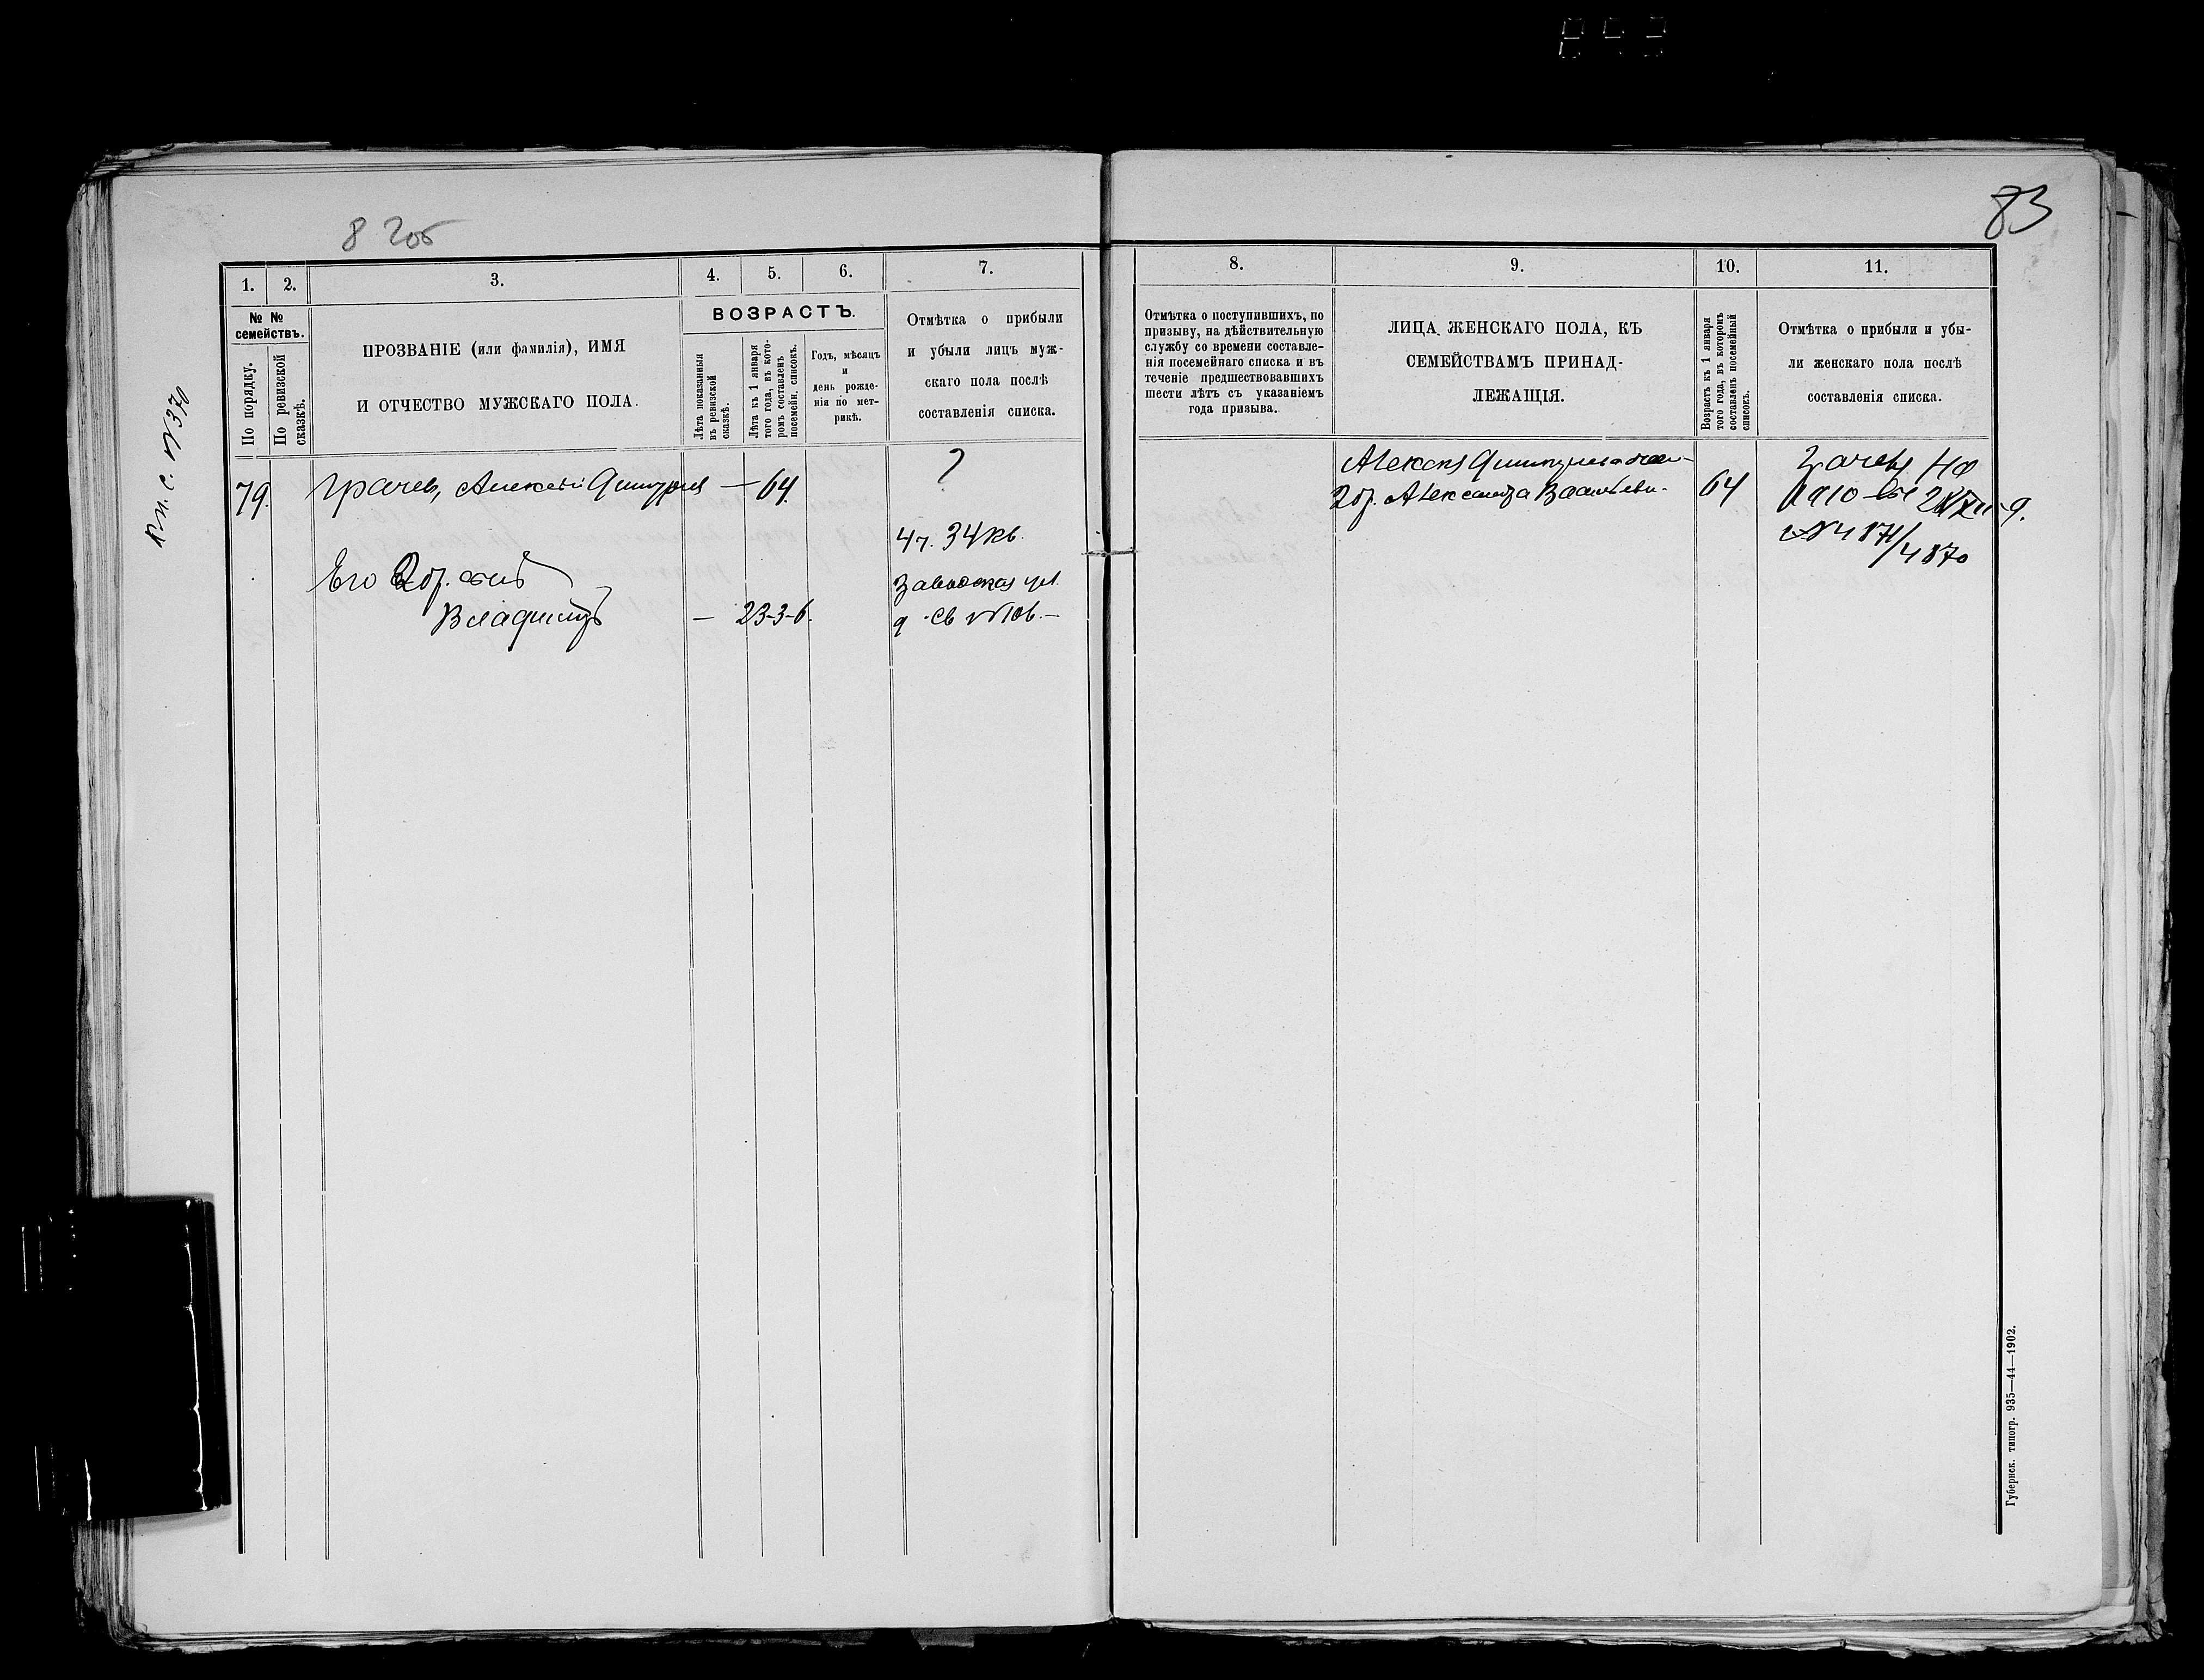 82об
83
Кн. с. №370
1.
2.
3.
4.
5.
6.
7.
№ №
семействъ.
По порядку.
По ревизской
сказкѣ.
ПРОЗВАНІЕ (или фамилія), ИМЯ
И ОТЧЕСТВО МУЖСКАГО ПОЛА.
ВОЗРАСТЪ.
Лѣта показанныя
въ ревизской
сказкѣ.
Лѣта къ 1 января
того года, въ кото-
ромъ составленъ
посемейн. списокъ.
Годъ, мѣсяцъ
и
день рожде-
нія по мет-
рикѣ.
Отмѣтка о прибыли
и убыли лицъ муж-
скаго пола послѣ
составленія списка.
79. Грачев, Алексѣй Дмитріев — 64.
?
4 ч. 34 кв.
Его
Заводская ул.
Владиміръ — 23-3-6.
д. №10в. —
8.
9.
10.
11.
Отмѣтка о поступившихъ, по
призыву, на дѣйствительную
службу со времени составле-
нія посемейнаго списка и въ
теченіе предшествовавшихъ
шести лѣтъ съ указаніемъ
года призыва.
ЛИЦА ЖЕНСКАГО ПОЛА, КЪ
СЕМЕЙСТВАМЪ ПРИНАД-
ЛЕЖАЩІЯ.
Возрастъ къ 1 января
того года, въ которомъ
составленъ посемейный
списокъ.
Отмѣтка о прибыли и убы-
ли женскаго пола послѣ
составленія списка.
Алексѣя Дмитриева
Александра Васильева. 64
на
1910
№ 4871/4870
Губернск. типогр. 935—44—1902.